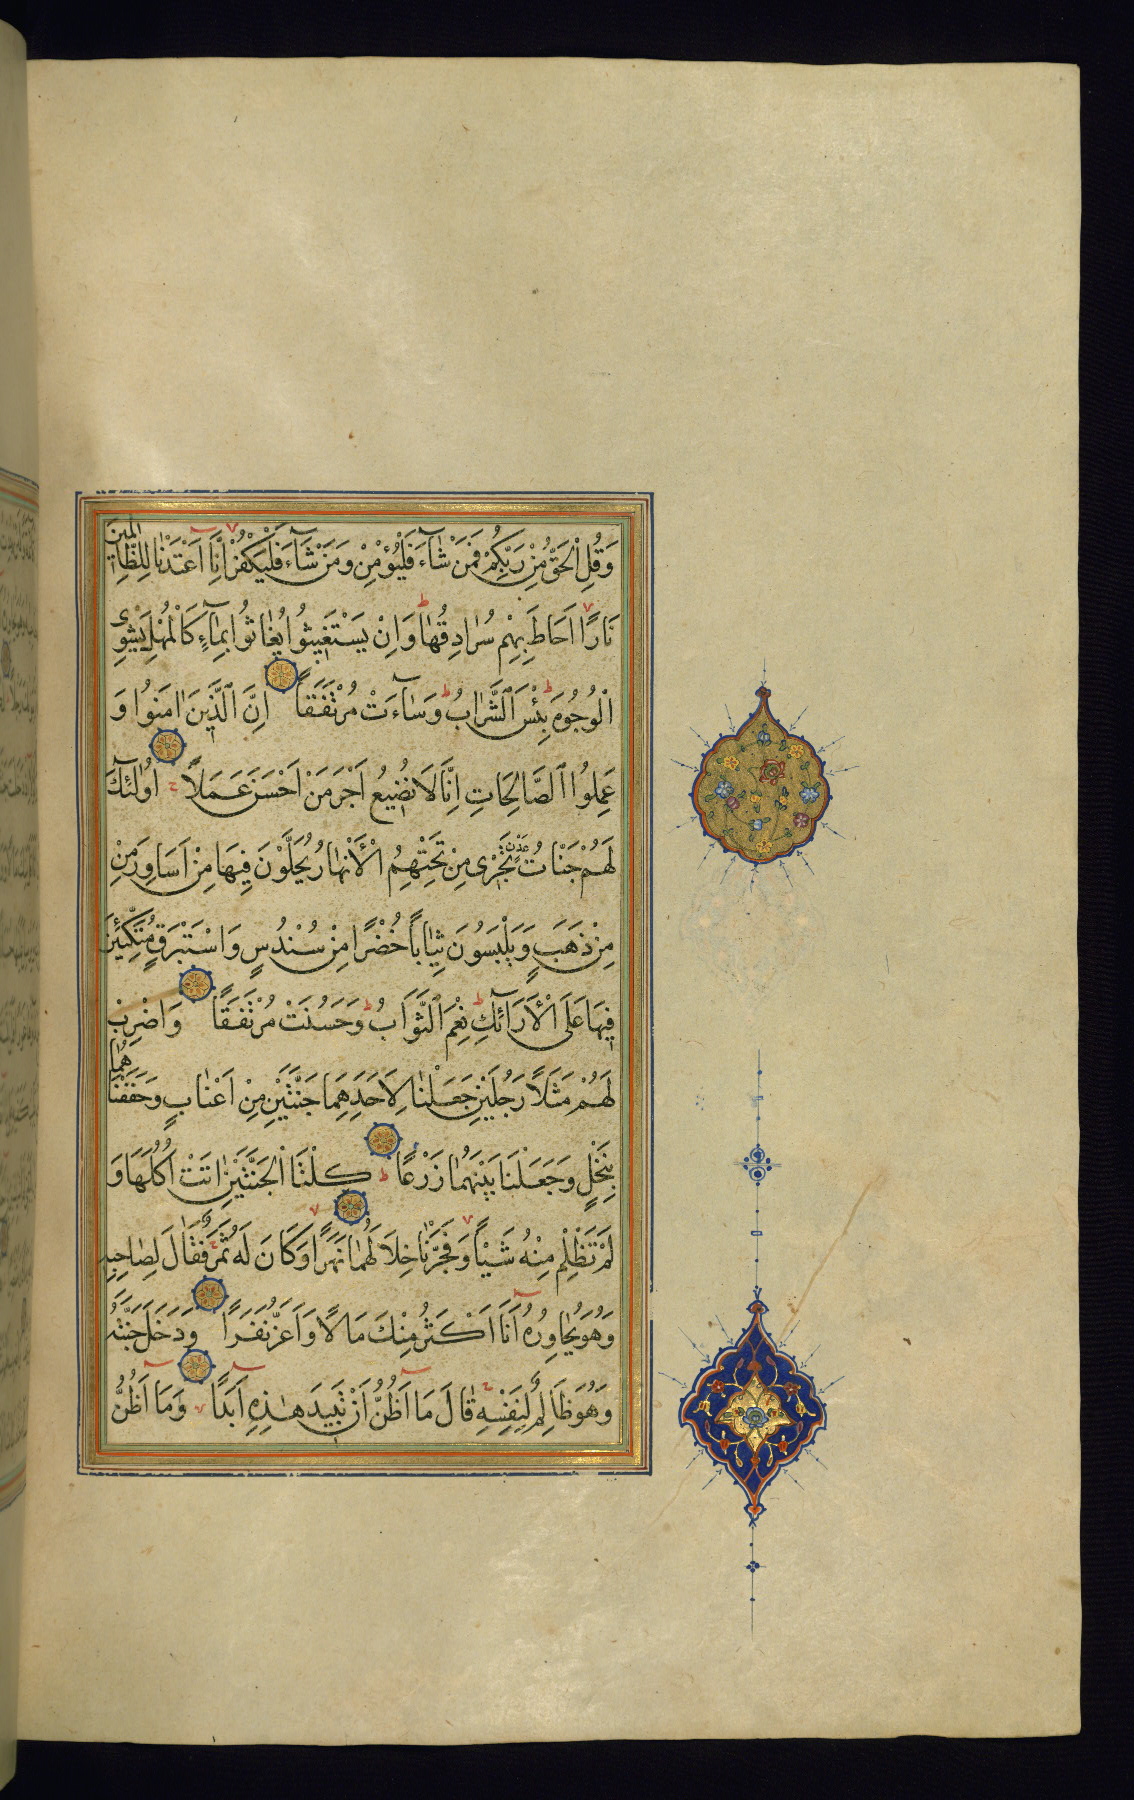 وَقُلِ الْحَقُّ مِنْ رَبِّكُمْ فَمَنْ شَآءَ فَلْيُؤْمِنْ وَمَنْ شَآءَ فَلْيَكْفُرْ اِنَّا اَعْتَدْنَا لِلظَّالِمِينَ
نَارًا اَحَاطَ بِهِمْ سُرَادِقُهَا وَاِنْ يَسْتَغِيثُوا يُغَاثُوا بِمَآءٍ كَالْمُهْلِ يَشْوِى
الْوُجُوهَ بِئْسَ الشَّرَابُ وَسَآءَتْ مُرْتَفَقًا اِنَّ الَّذِينَ اٰمَنُوا وَ
عَمِلُوا الصَّالِحَاتِ اِنَّا لَا نُضِيعُ اَجْرَ مَنْ اَحْسَنَ عَمَلًا اُولٰئِكَ
لَهُمْ جَنَّاتُ عَدْنٍ تَجْرِى مِنْ تَحْتِهِمُ الْاَنْهَارُ يُحَلَّوْنَ فِيهَا مِنْ اَسَاوِرَ مِنْ
مِنْ ذَهَبٍ وَيَلْبَسُونَ ثِيَابًا خُضْرًا مِنْ سُنْدُسٍ وَاسْتَبْرَقٍ مُتَّكِئِينَ
فِيهَا عَلَى الْاَرَآئِكِ نِعْمَ الثَّوَابُ وَحَسُنَتْ مُرْتَفَقًا وَاضْرِبْ
لَهُمْ مَثَلًا رَجُلَيْنِ جَعَلْنَا لِاَحَدِهِمَا جَنَّتَيْنِ مِنْ اَعْنَابٍ وَحَفَفْنَاهُمَا
بِنَخْلٍ وَجَعَلْنَا بَيْنَهُمَا زَرْعًا كِلْتَا الْجَنَّتَيْنِ اٰتَتْ اُكُلَهَا وَ
لَمْ تَظْلِمْ مِنْهُ شَيْئًا وَفَجَّرْنَا خِلَالَهُمَا نَهَرًا وَكَانَ لَهُ ثَمَرٌ فَقَالَ لِصَاحِبِهِ
وَهُوَ يُحَاوِرُهُ اَنَا اَكْثَرُ مِنْكَ مَالًا وَاَعَزُّ نَفَرًا وَدَخَلَ جَنَّتَهُ
وَهُوَ ظَالِمٌ لِنَفْسِهِ قَالَ مَا اَظُنُّ اَنْ تَبِيدَ هٰذِهِ اَبَدًا وَمَا اَظُنُّ